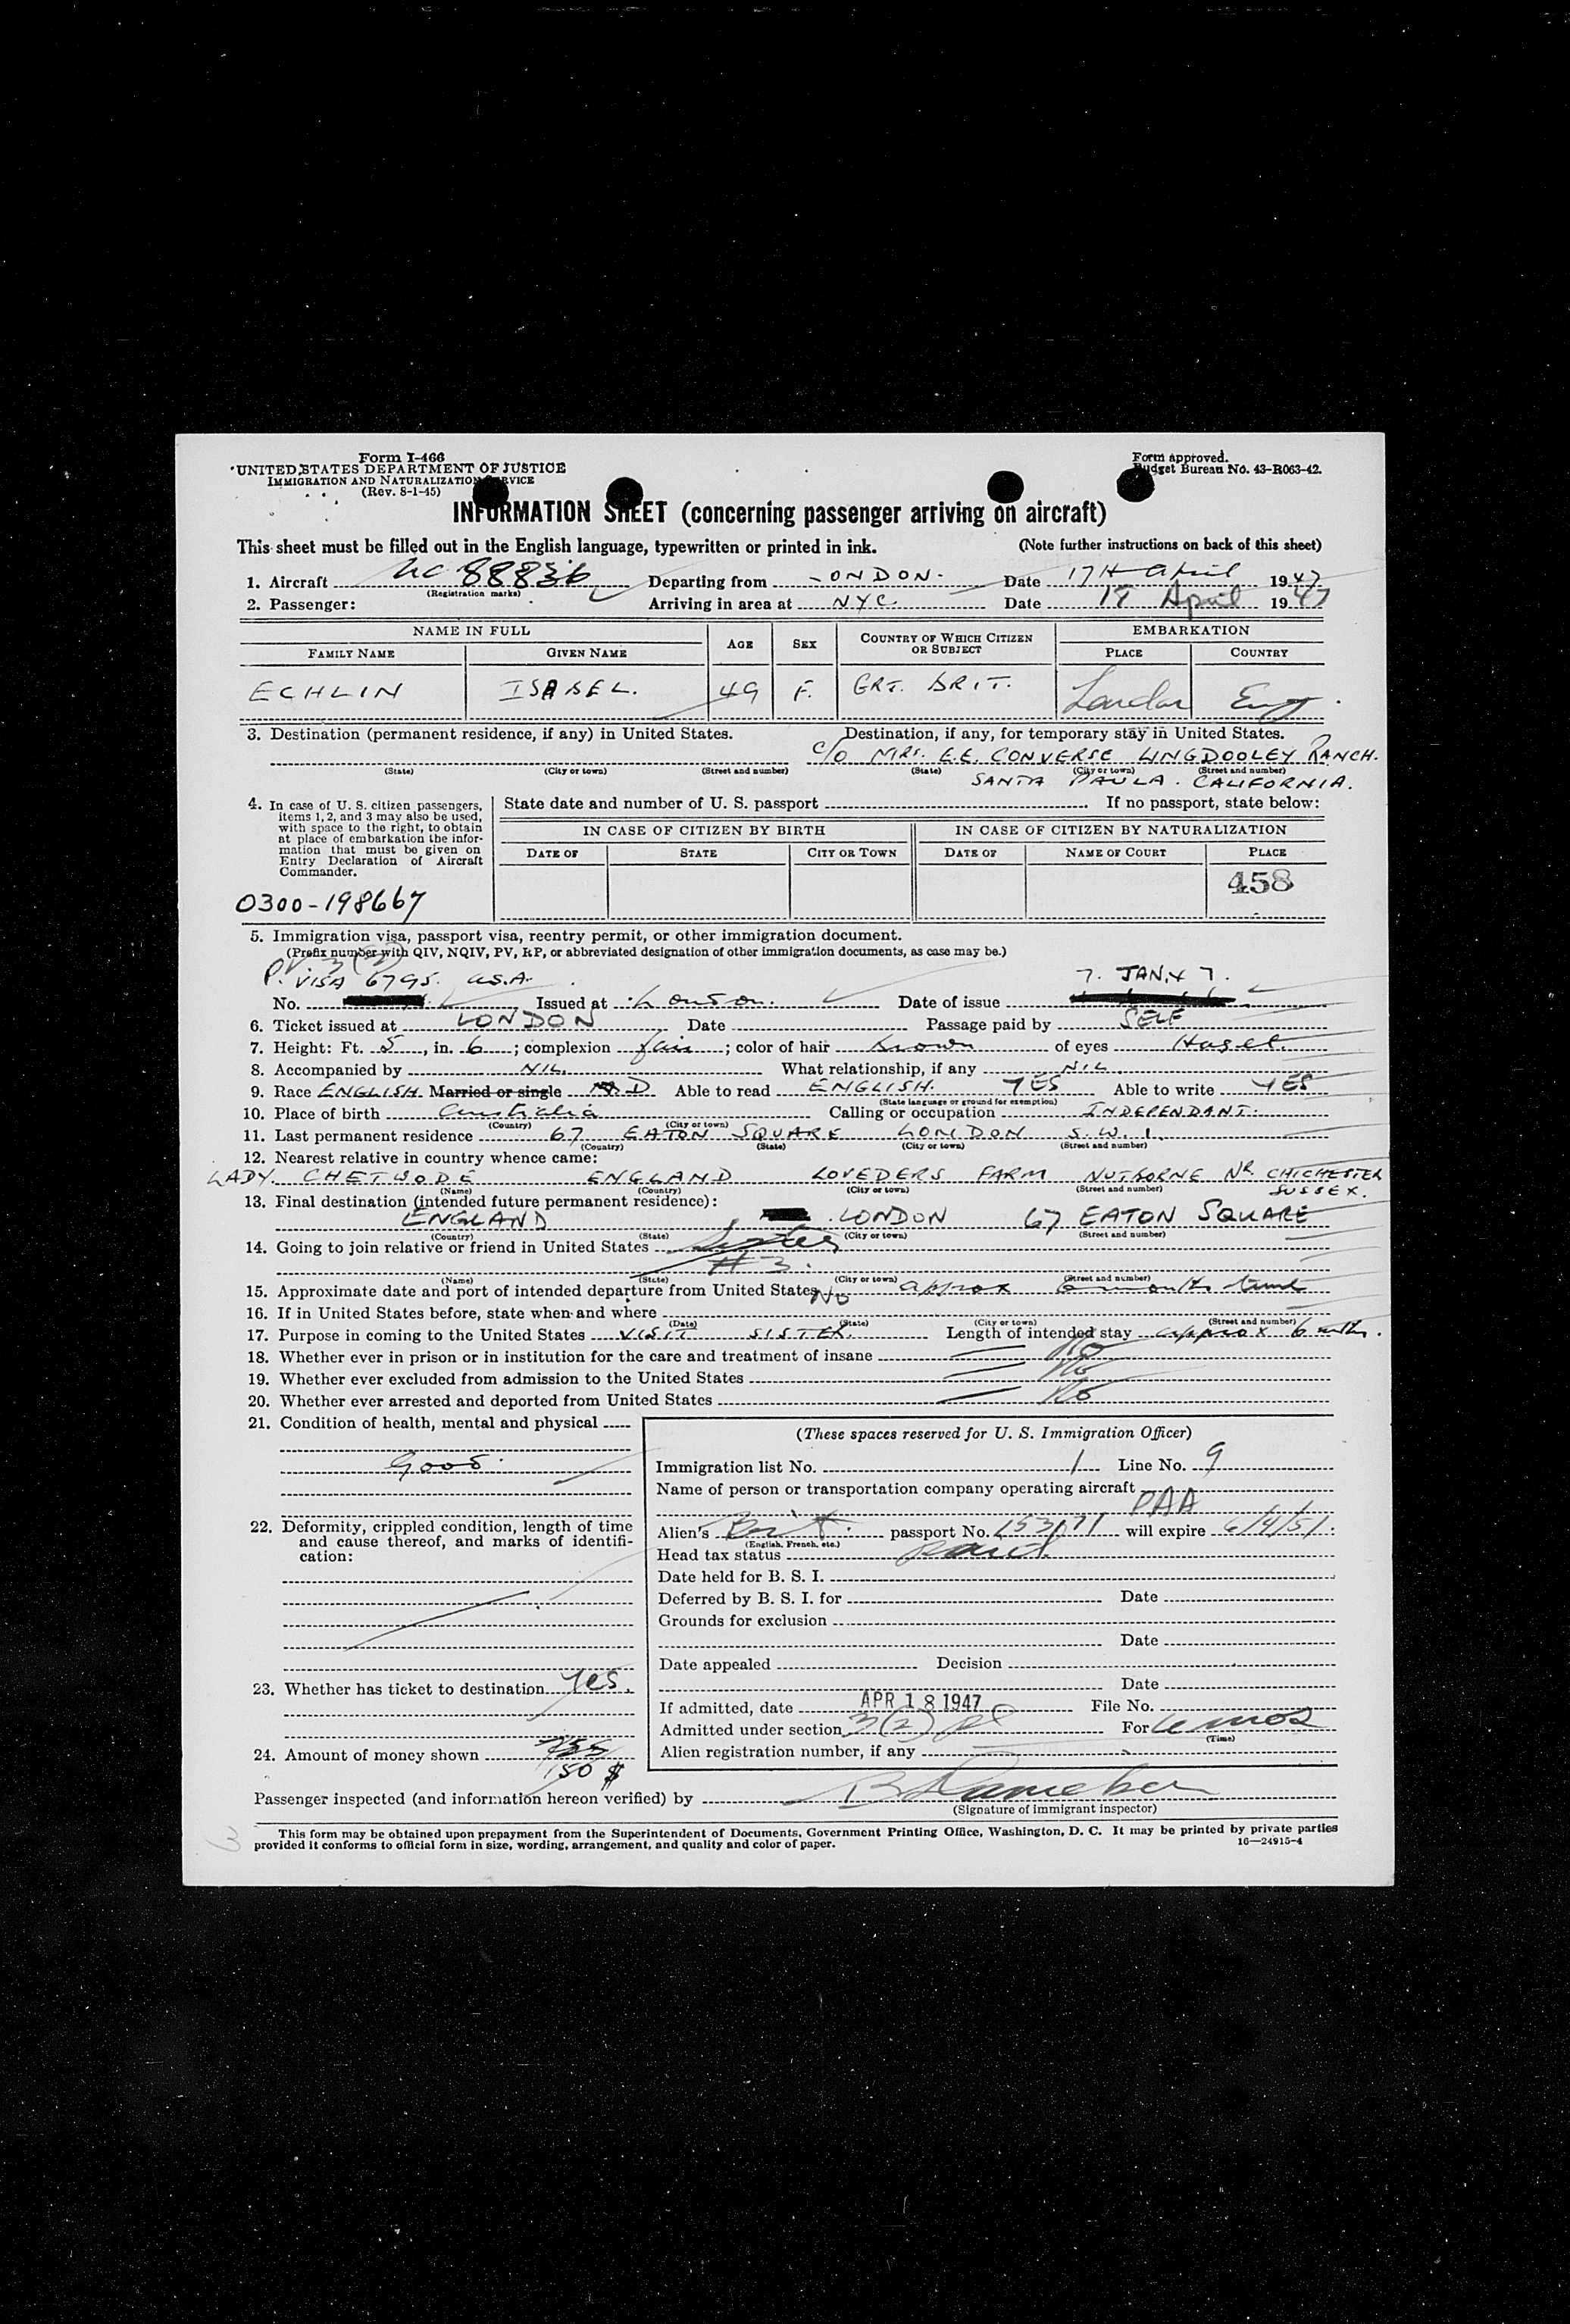 Form I-466
UNITED STATES DEPARTMENT OF JUSTICE
IMMIGRATION AND NATURALIZATION SERVICE
(Rev. 8-1-45)
Form approved.
Budget Bureau No. 43-R063-42.
INFORMATION SHEET (concerning passenger arriving on aircraft)
This sheet must be filled out in the English language, typewritten or printed in ink. (Note further instructions on back of this sheet)
1. Aircraft NC 88836 Departing from LONDON. Date 17th April 1947
(Registration marks)
2. Passenger: Arriving in area at NYC. Date 18 April 1947
NAME IN FULL AGE SEX COUNTRY OF WHICH CITIZEN OR SUBJECT EMBARKATION
FAMILY NAME GIVEN NAME PLACE COUNTRY
ECHLIN ISABEL. 49 F. GRT. BRIT. London Eng
3. Destination (permanent residence, if any) in United States. Destination, if any, for temporary stay in United States.
C/O MRS. E.E. CONVERSE LINGDOOLEY RANCH.
(State) (City or town) (Street and number) (State) (City or town) (Street and number)
SANTA PAULA. CALIFORNIA.
4. In case of U. S. citizen passengers, items 1, 2, and 3 may also be used, with space to the right, to obtain at place of embarkation the information that must be given on Entry Declaration of Aircraft Commander.
State date and number of U. S. passport If no passport, state below:
IN CASE OF CITIZEN BY BIRTH IN CASE OF CITIZEN BY NATURALIZATION
DATE OF STATE CITY OR TOWN DATE OF NAME OF COURT PLACE
458
0300-198667
5. Immigration visa, passport visa, reentry permit, or other immigration document.
(Prefix number with QIV, NQIV, PV, RP, or abbreviated designation of other immigration documents, as case may be.)
P.V. 3(2)
VISA 6795. U.S.A. 7. JAN. 47.
No. Issued at London. Date of issue
6. Ticket issued at LONDON Date Passage paid by SELF
7. Height: Ft. 5, in. 6; complexion fair; color of hair Brown of eyes Hazel.
8. Accompanied by NIL. What relationship, if any NIL.
9. Race ENGLISH Married or single D Able to read ENGLISH. YES Able to write YES
(State language or ground for exemption)
10. Place of birth Australia Calling or occupation INDEPENDANT.
(Country) (City or town)
11. Last permanent residence 67 EATON SQUARE LONDON S.W.1.
(Country) (State) (City or town) (Street and number)
12. Nearest relative in country whence came:
LADY. CHETWODE ENGLAND LOVEDERS FARM NUTBORNE NR CHICHESTER
(Name) (Country) (City or town) (Street and number) SUSSEX.
13. Final destination (intended future permanent residence):
ENGLAND LONDON 67 EATON SQUARE
(Country) (State) (City or town) (Street and number)
14. Going to join relative or friend in United States Sister
#3.
(Name) (State) (City or town) (Street and number)
15. Approximate date and port of intended departure from United States approx 6 months time
16. If in United States before, state when and where No
(Date) (State) (City or town) (Street and number)
17. Purpose in coming to the United States VISIT SISTER. Length of intended stay approx 6 mths.
18. Whether ever in prison or in institution for the care and treatment of insane No
19. Whether ever excluded from admission to the United States No
20. Whether ever arrested and deported from United States No
21. Condition of health, mental and physical
Good.
22. Deformity, crippled condition, length of time and cause thereof, and marks of identification:
23. Whether has ticket to destination Yes.
24. Amount of money shown
150 $
(These spaces reserved for U. S. Immigration Officer)
Immigration list No. 1 Line No. 9
Name of person or transportation company operating aircraft
PAA
Alien's Brit. passport No. 153171 will expire 6/4/51.
(English, French, etc.)
Head tax status paid.
Date held for B. S. I.
Deferred by B. S. I. for Date
Grounds for exclusion
Date
Date appealed Decision
Date
If admitted, date APR 18 1947 File No.
Admitted under section 3(2) For 6 mos
(Time)
Alien registration number, if any
Passenger inspected (and information hereon verified) by
(Signature of immigrant inspector)
This form may be obtained upon prepayment from the Superintendent of Documents, Government Printing Office, Washington, D. C. It may be printed by private parties
provided it conforms to official form in size, wording, arrangement, and quality and color of paper. 16—24915-4